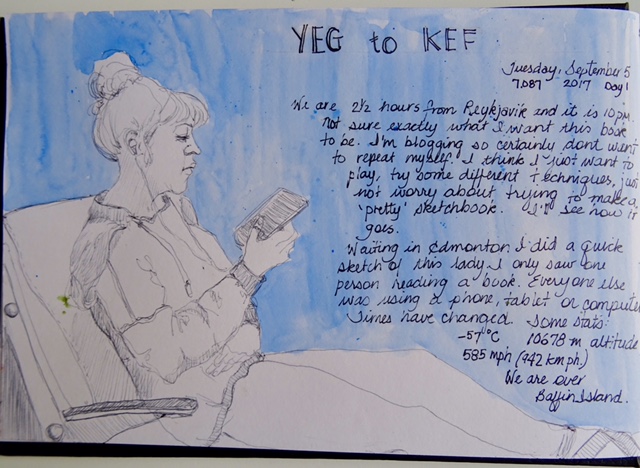 YEG to KEF
Tuesday, September 5
7,087 2017 Day 1
We are 2½ hours from Reykjavik and it is 10pm.
Not sure exactly what I want this book
to be. I'm blogging so certainly dont want
to repeat myself. I think I just want to
play, try some different techniques, just
not worry about trying to make a
'pretty' sketchbook. I'll see how it
goes.
Waiting in Edmonton I did a quick
sketch of this lady. I only saw one
person reading a book. Everyone else
was using a phone, tablet or computer
Times have changed. Some stats:
-57°C 10678 m altitude
585 mph (942 kmph)
We are over
Baffin Island.